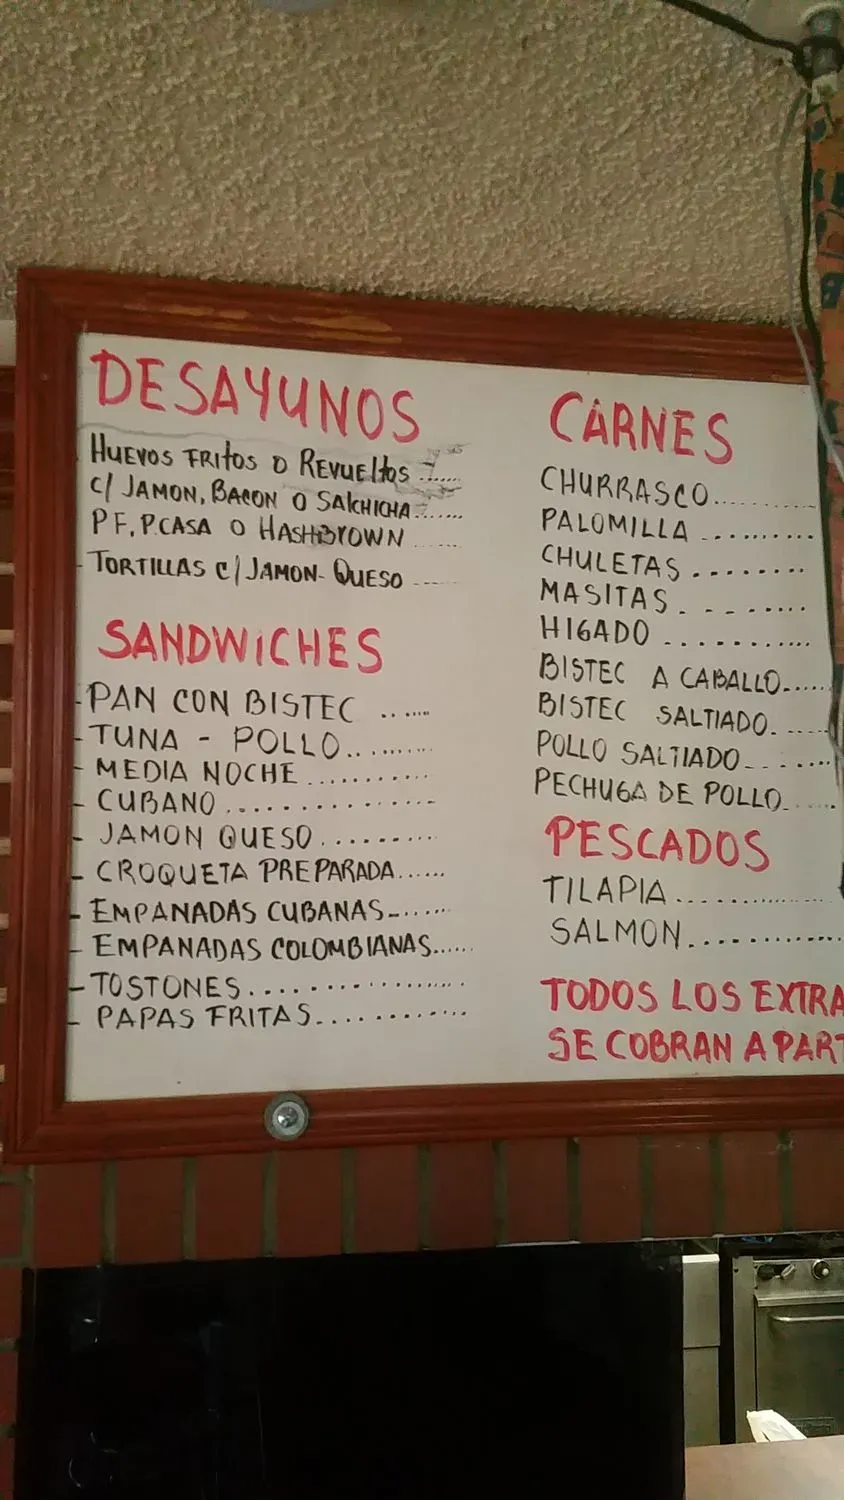 DESAYUNOS
HUEVOS FRITOS O REVUELTOS .......
C/ JAMON, BACON O SALCHICHA .......
P F, P. CASA O HASHBROWN .....
- TORTILLAS C/ JAMON - QUESO ......
SANDWICHES
- PAN CON BISTEC ......
- TUNA - POLLO ..........
- MEDIA NOCHE ..........
- CUBANO ..............
- JAMON QUESO .........
- CROQUETA PREPARADA ......
- EMPANADAS CUBANAS - ......
- EMPANADAS COLOMBIANAS ......
- TOSTONES ...............
- PAPAS FRITAS ...........
CARNES
CHURRASCO ..........
PALOMILLA ..........
CHULETAS ........
MASITAS ........
HIGADO ...........
BISTEC A CABALLO ......
BISTEC SALTIADO ......
POLLO SALTIADO ........
PECHUGA DE POLLO ....
PESCADOS
TILAPIA ............
SALMON ............
TODOS LOS EXTRA
SE COBRAN APART